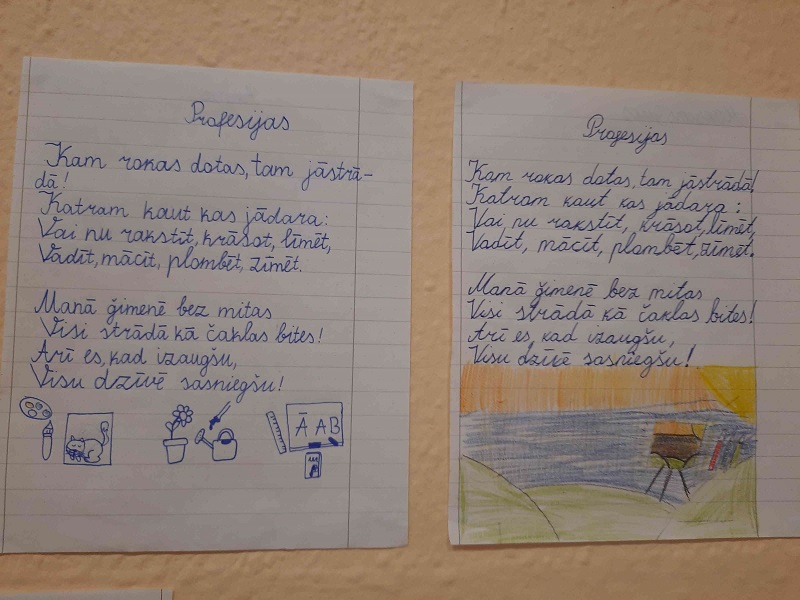 Profesijas
Kam rokas dotas, tam jāstrā-
dā!
Katram kaut kas jādara:
Vai nu rakstīt, krāsot, līmēt,
Vadīt, mācīt, plombēt, zīmēt.
Manā ģimenē bez mitas
Visi strādā kā čaklas bites!
Arī es, kad izaugšu,
Visu dzīvē sasniegšu!
Ā AB
AAA
Profesijas
Kam rokas dotas, tam jāstrādā!
Katram kaut kas jādara:
Vai nu rakstīt, krāsot, līmēt,
Vadīt, mācīt, plombēt, zīmēt.
Manā ģimenē bez mitas
Visi strādā kā čaklas bites!
Arī es, kad izaugšu,
Visu dzīvē sasniegšu!